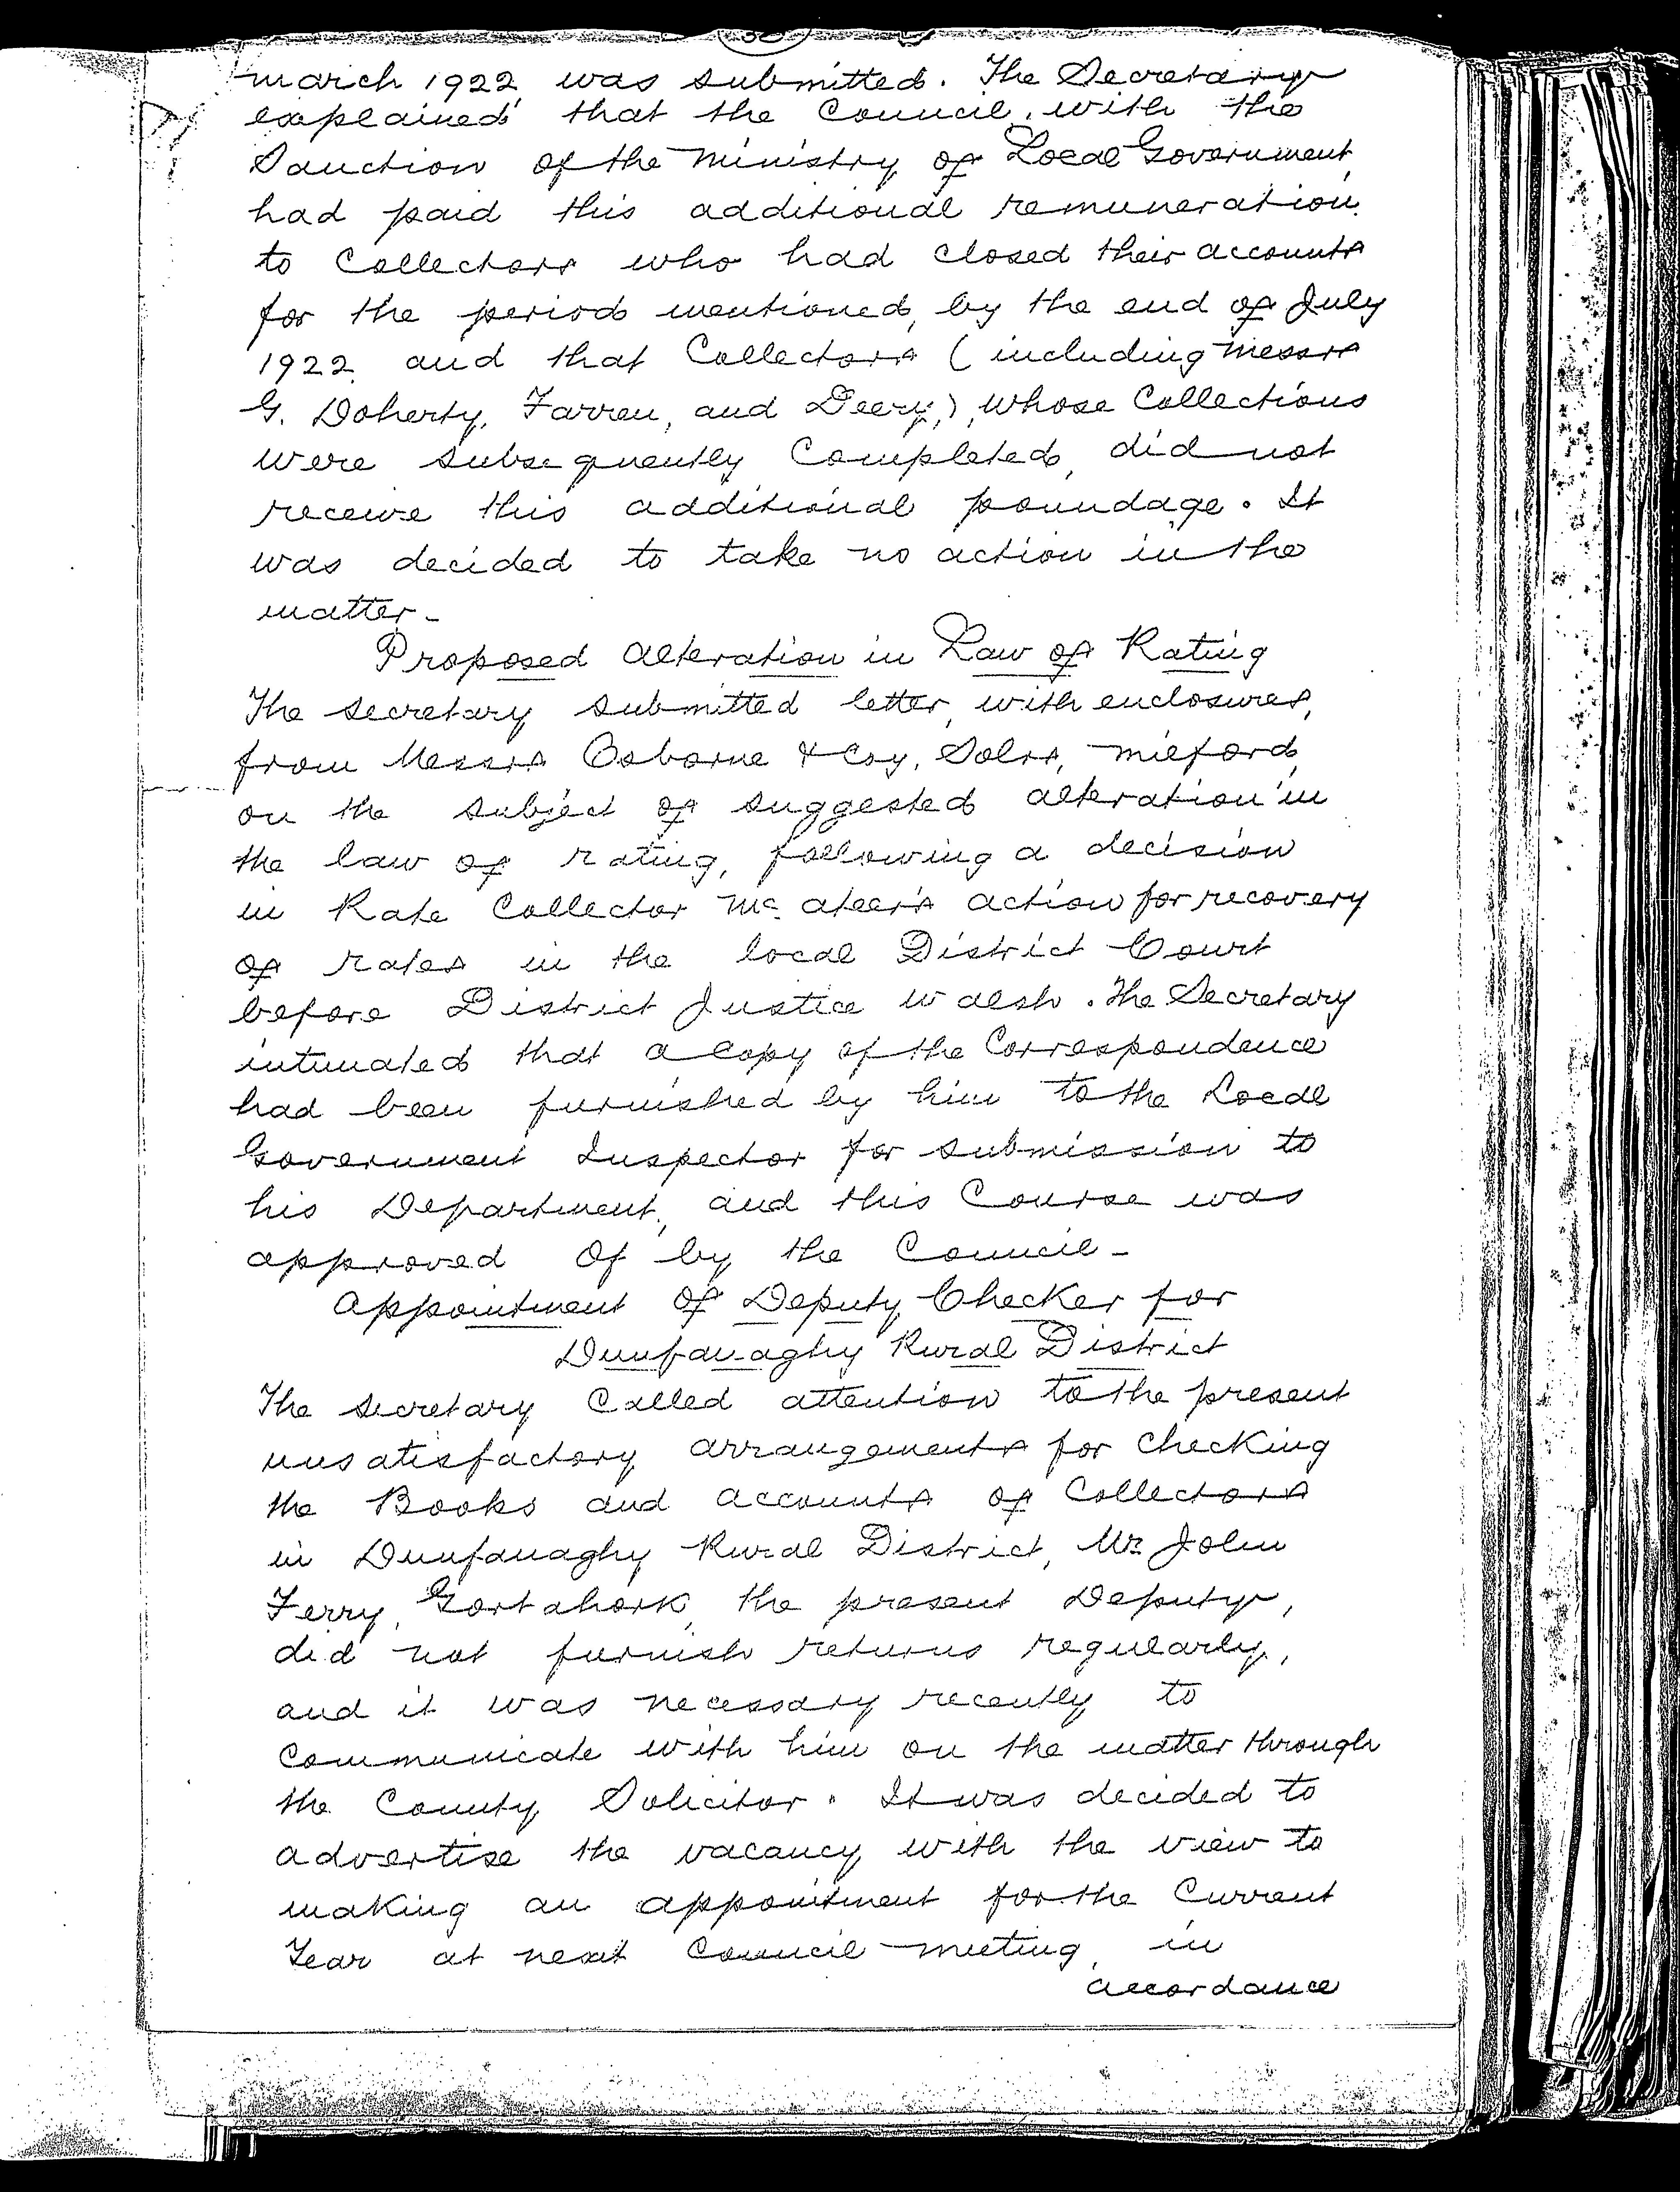 March 1922 was submitted. The Secretary
explained that the Council, with the
Sanction of the Ministry of Local Government,
had paid this additional remuneration
to Collectors who had closed their accounts
for the period mentioned, by the end of July
1922, and that Collectors (including Messrs
G. Doherty, Farren, and Deery,), whose Collections
were subsequently Completed, did not
receive this additional poundage. It
was decided to take no action in the
matter -
Proposed alteration in Law of Rating
The secretary submitted letter, with enclosures,
from Messrs Osborne & Coy, Solrs, Milford,
on the subject of suggested alteration in
the law of rating, following a decision
in Rate Collector Mc Ateer's action for recovery
of rates in the local District Court
before District Justice Walsh. The Secretary
intimated that a Copy of the Correspondence
had been furnished by him to the Local
Government Inspector for submission to
his Department, and this Course was
approved Of by the Council -
Appointment Of Deputy Checker for
Dunfanaghy Rural District
The secretary Called attention to the present
unsatisfactory arrangements for Checking
the Books and accounts of Collectors
in Dunfanaghy Rural District, Mr. John
Ferry, Gortahork, the present Deputy,
did not furnish returns regularly,
and it was necessary recently to
Communicate with him on the matter through
the County Solicitor. It was decided to
advertise the vacancy with the view to
making an appointment for the Current
Year at next Council meeting, in
accordance